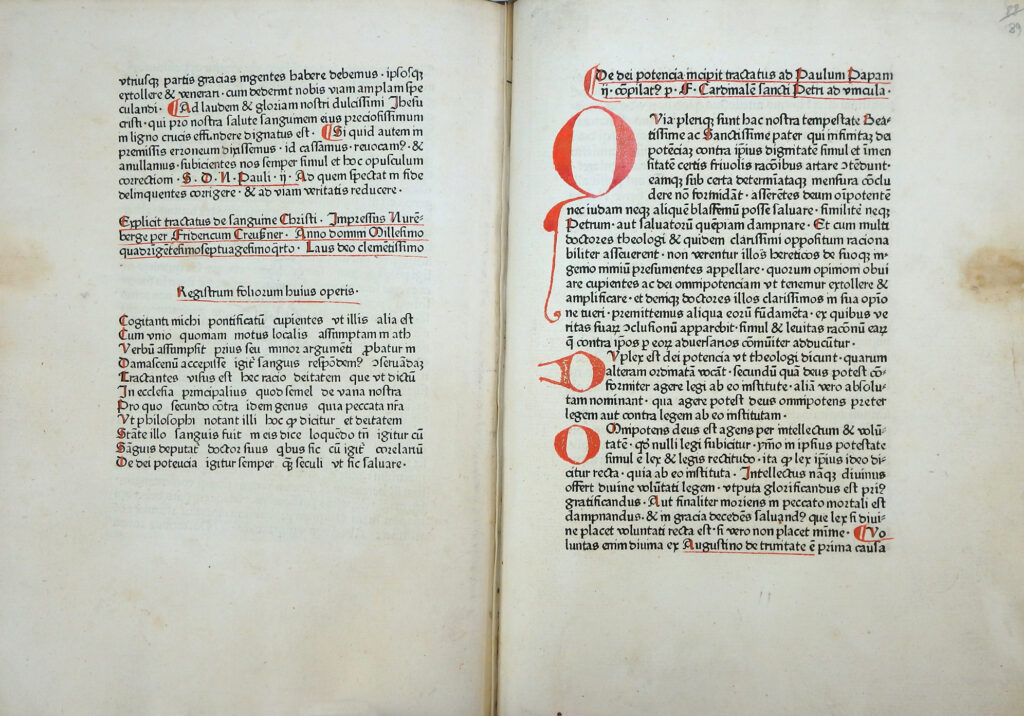 vtriusqȝ partis gracias ingentes habere debemus · ipsosqȝ
extollere & venerari · cum dederint nobis viam amplam spe
culandi · Ad laudem & gloriam nostri dulcissimi Jhesu
cristi · qui pro nostra salute sanguinem eius preciosissimum
in ligno crucis effundere dignatus est · Si quid autem in
premissis erroneum dixissemus · id cassamus · reuocam⁹ · &
anullamus · subicientes nos semper simul et hoc opusculum
correctioni · S · D · N · Pauli · ij · Ad quem spectat in fide
delinquentes corrigere · & ad viam veritatis reducere ·
Explicit tractatus de sanguine Christi · Impressus Nurē-
berge per Fridericum Creuſsner · Anno domini Millesimo
quadrigētesimoseptuagesimoq̄rto · Laus deo clemētissimo
Registrum foliorum huius operis ·
Cogitanti michi pontificatū cupientes vt illis alia est
Cum vnio quoniam motus localis assumptam in ath
Verbū assumpsit prius seu minor argumēti ꝓbatur in
Damascenū accepisse igit᷑ sanguis respōdem⁹ ↄseruādaꝝ
Tractantes visus est hec racio deitatem que vt dictū
In ecclesia principalius quod semel de vana nostra
Pro quo secundo cōtra idem genus quia peccata nr̄a
Vt philosophi notant illi hoc ꝙ dicitur et deitatem
Stāte illo sanguis fuit in eis dice loquēdo tn̄ igitur cū
Sāguis deputat᷑ doctor suus qbus sic cū igit᷑ corelariū
De dei potencia igitur semper qȝ seculi vt sic saluare ·
88
89
De dei potencia incipit tractatus ad Paulum Papam
ij · cōpilat⁹ p · F · Cardinalē sancti Petri ad vincula ·
QVia pleriqȝ sunt hac nostra tempestate Bea-
tissime ac Sanctissime pater qui infinitaȝ dei
potēciaȝ contra ip̄ius dignitatē simul et imen
sitatē certis friuolis racōibus artare ↄtēdunt ·
eamqȝ sub certa determīataqȝ mensura cōclu
dere nō formidāt · asserētes deum oīpotentē
nec iudam neqȝ aliquē blasfemū posse saluare · similitē neqȝ
Petrum · aut saluatorū quēpiam dampnare · Et cum multi
doctores theologi & quidem clarissimi oppositum raciona
biliter asseuerent · non verentur illos hereticos de suoqȝ in-
genio nimiū presumentes appellare · quorum opinioni obui
are cupientes ac dei omnipotenciam vt tenemur extollere &
amplificare · et deniqȝ doctores illos clarissimos in sua opīo
ne tueri · premittemus aliqua eorū fūdamēta · ex quibus ve
ritas suaꝝ ↄclusionū apparebit · simul & leuitas racōnū eaꝝ
q̄ contra ip̄os ꝑ eoꝝ aduersarios cōmūiter adducūtur ·
DVplex est dei potencia vt theologi dicunt · quarum
alteram ordinatā vocāt · secundū quā deus potest cō-
formiter agere legi ab eo institute · aliā vero absolu-
tam nominant · qua agere potest deus omnipotens preter
legem aut contra legem ab eo institutam ·
OMnipotens deus est agens per intellectum & volū-
tatē · ꝙ nulli legi subicitur · ymo in ipsius potestate
simul ē lex & legis rectitudo · ita ꝙ lex ip̄ius ideo di-
citur recta · quia ab eo instituta · Intellectus nāqȝ diuinus
offert diuine volūtati legem · vtputa glorificandus est pri⁹
gratificandus · Aut finaliter moriens in peccato mortali est
dampnandus · & in gracia decedēs saluand⁹ que lex si diui-
ne placet voluntati recta est · si vero non placet minime · Vo
luntas enim diuina ex Augustino de trinitate ē prima causa